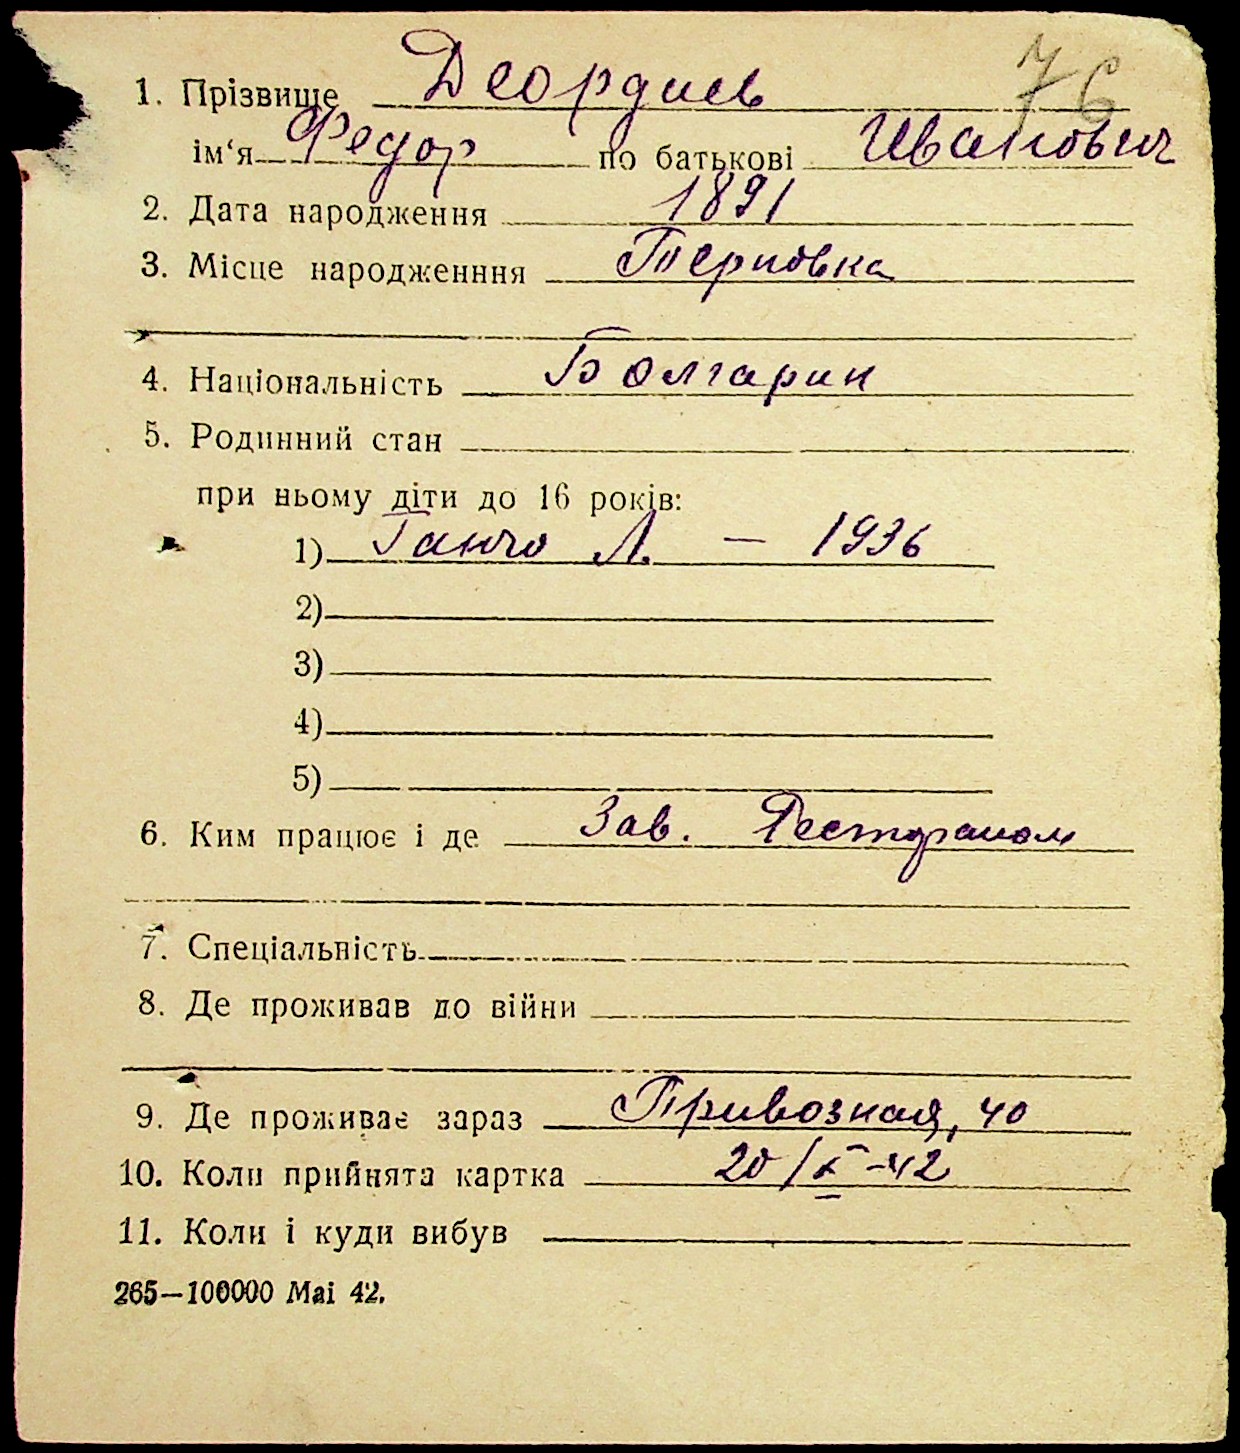 76
1. Прізвище Деордиев
ім‘я Федор по батькові Иванович
2. Дата народження 1891
3. Місце народженння Терновка
4. Національність Болгарин
5. Родинний стан
при ньому діти до 16 років:
1) Ганчо Л. — 1936
2)
3)
4)
5)
6. Ким працює і де Зав. Рестораном
7. Спеціальність
8. Де проживав до війни
9. Де проживає зараз Привозная, 40
10. Коли прийнята картка 20/X-42
11. Коли і куди вибув
265—100000 Mai 42.